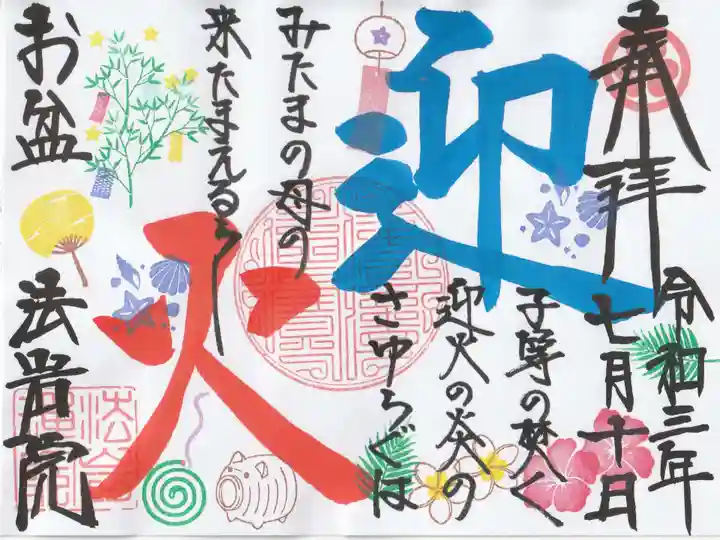 奉拝
令和三年
七月十日
迎火
子等の焚く
迎火の炎の
さゆらぐは
みたまの母の
来たまえるらし
お盆
法岩院